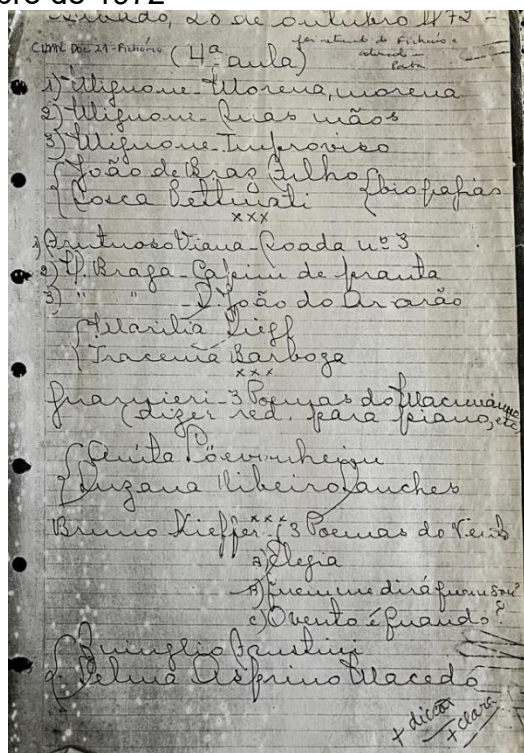 bro de 1972
Sábado, 20 de outubro 1972 -
CLMM Doc 21 - Fichário
(4ª aula)
foi retirado do Fichário e colocado na Pasta
1) Mignone - Morena, morena
2) Mignone - Quas mãos
3) Mignone - Improviso
João de Braz Filho
Rosca Bettinati
biografias
xxx
1) Frutuoso Viana - Toada nº 3
2) H. Braga - Capim de pranta
3) " " - S. João do Ararão
Marilia Dieff
Iracema Barboza
xxx
Guarnieri - 3 Poemas do Macunaíma
(dizer red. para piano, etc
Anita
Suzana Ribeiro Sanches
xxx
Bruno Kieffer - 3 Poemas do
a) Elegia
B) Quem me dirá quem sou?
c) O vento é quando?
Quinglio Faustini
Selma Asprino Macedo
+ dicção
+ clara